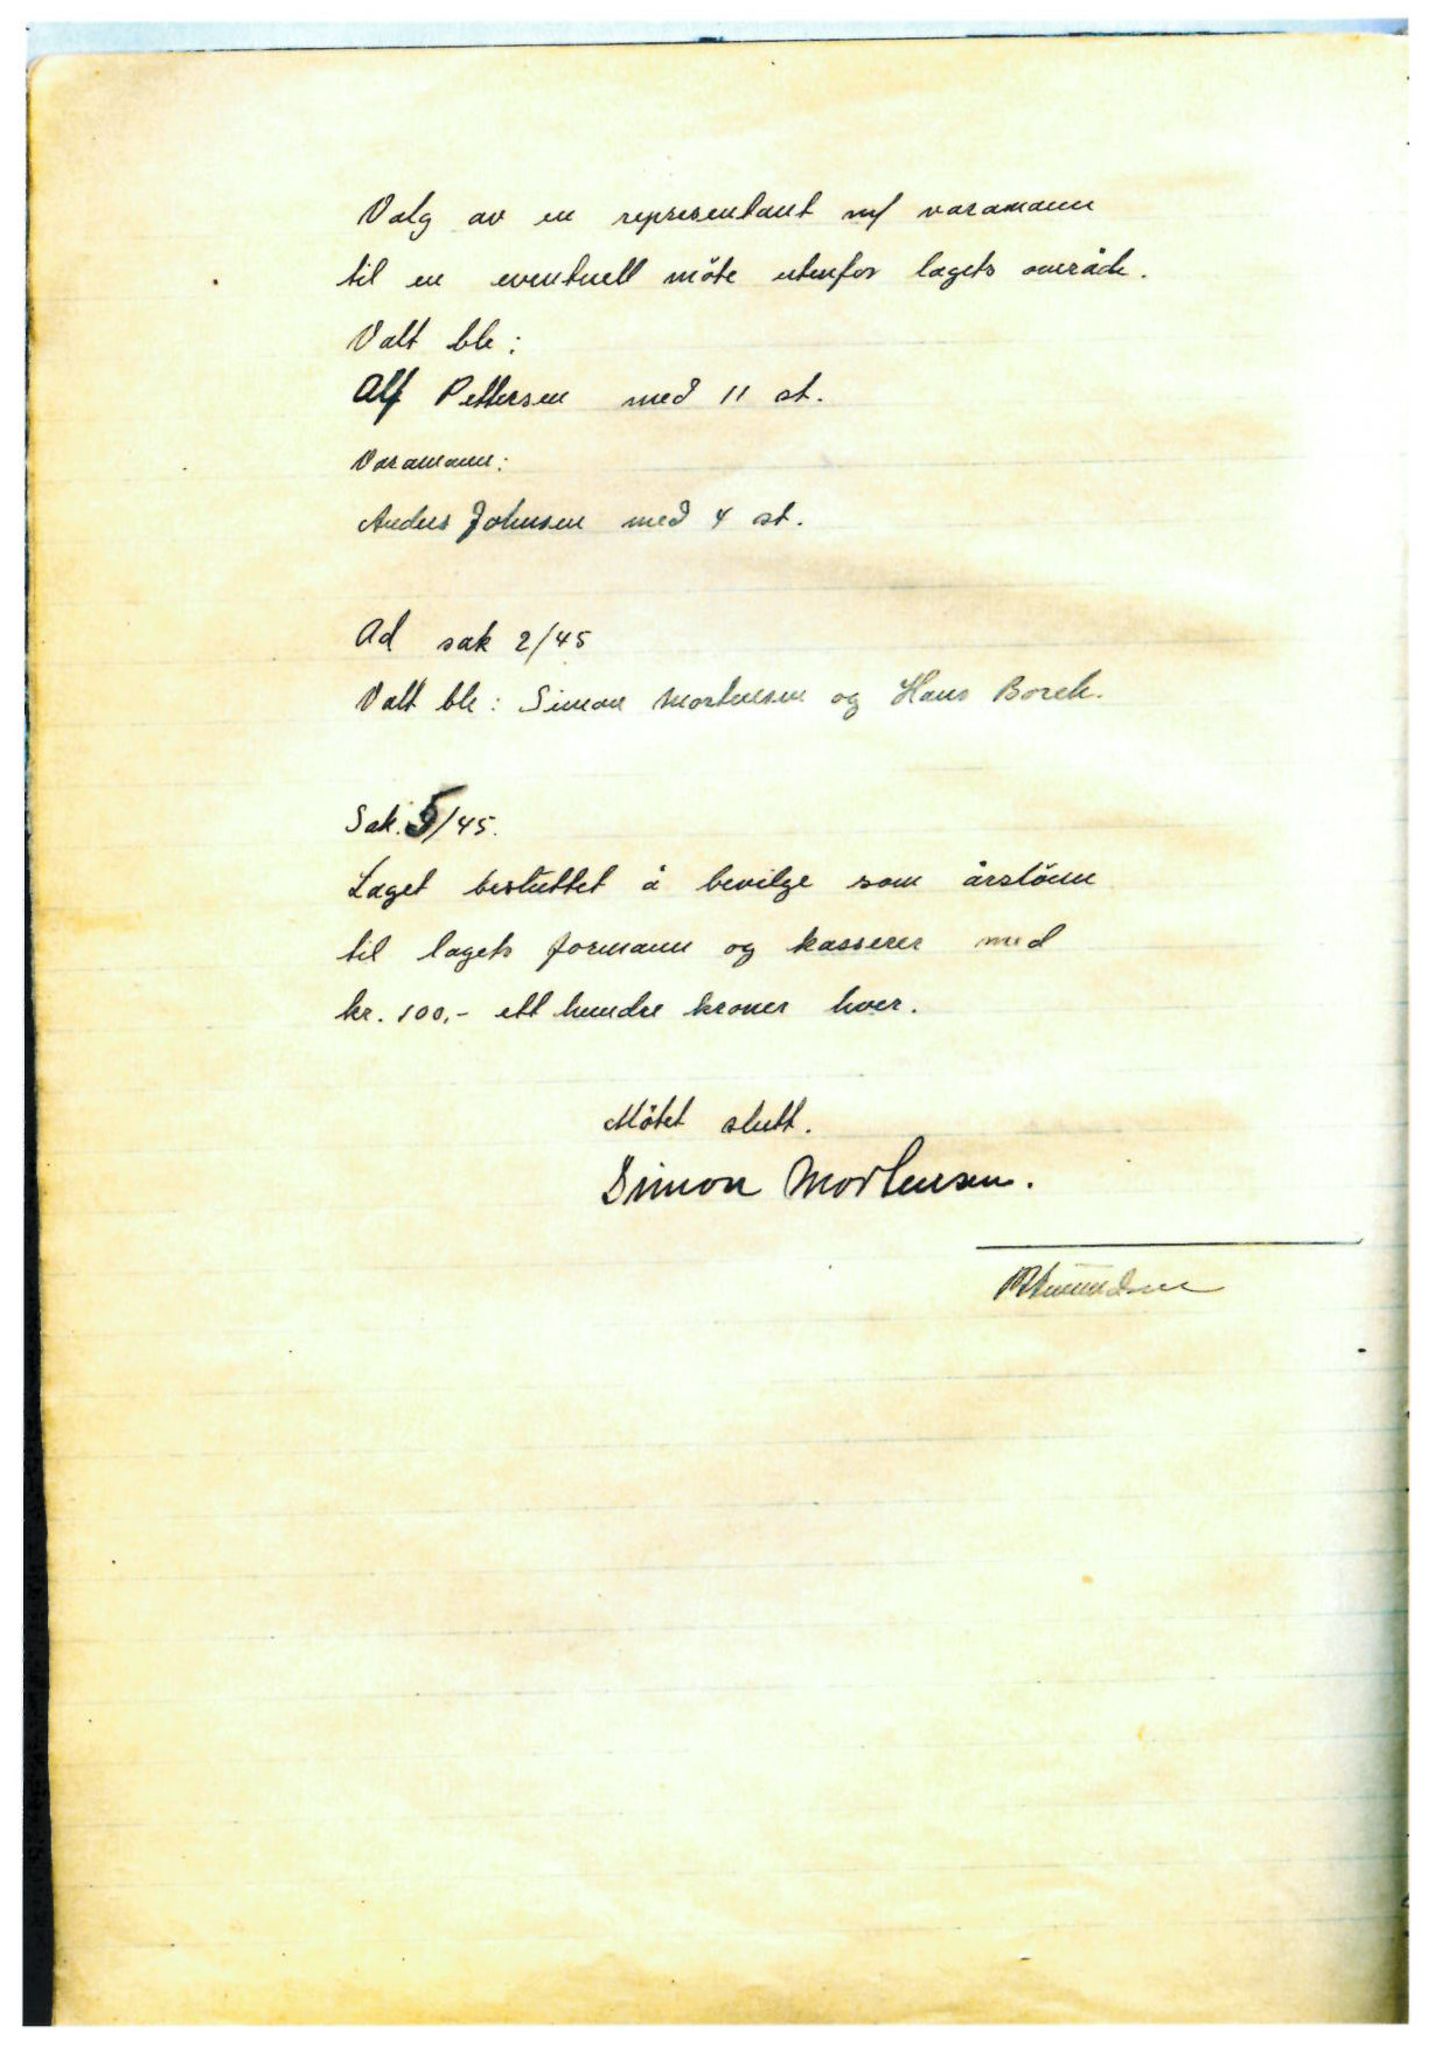 Valg av en representant m/ varamann
til en eventuell möte utenfor lagets område.
Valt ble:
Alf Pettersen med 11 st.
Varamann:
Anders Johnsen med 4 st.
Ad sak 2/45
Valt ble: Simon Mortensen og Hans Borch.
Sak. 5/45.
Laget besluttet å bevilge som årslönn
til lagets formann og kasserer med
kr. 100,- ett hundre kroner hver.
Mötet slutt.
Simon Mortensen.